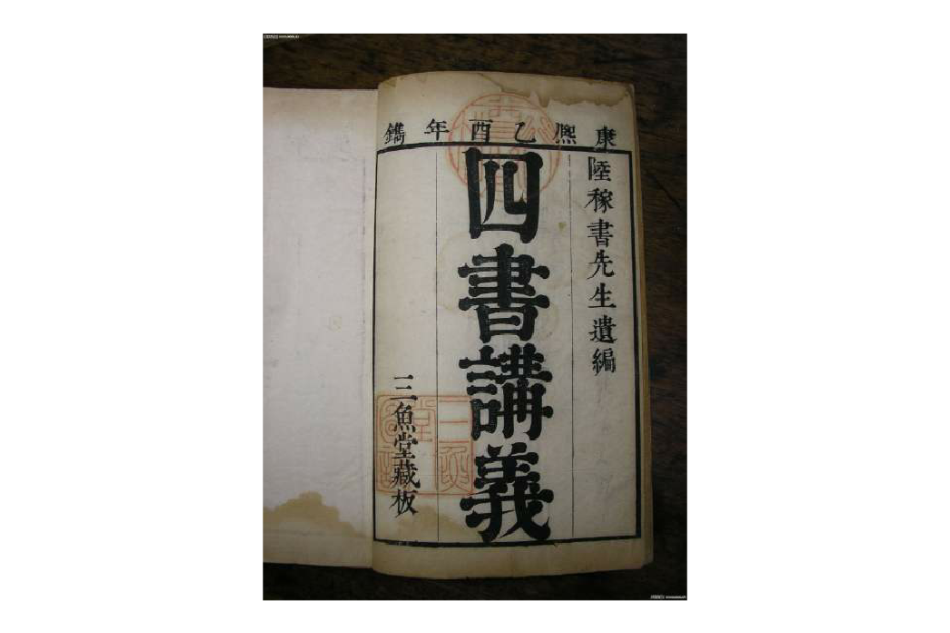 康熙乙酉年鐫
陸稼書先生遺編
四書講義
三魚堂藏板